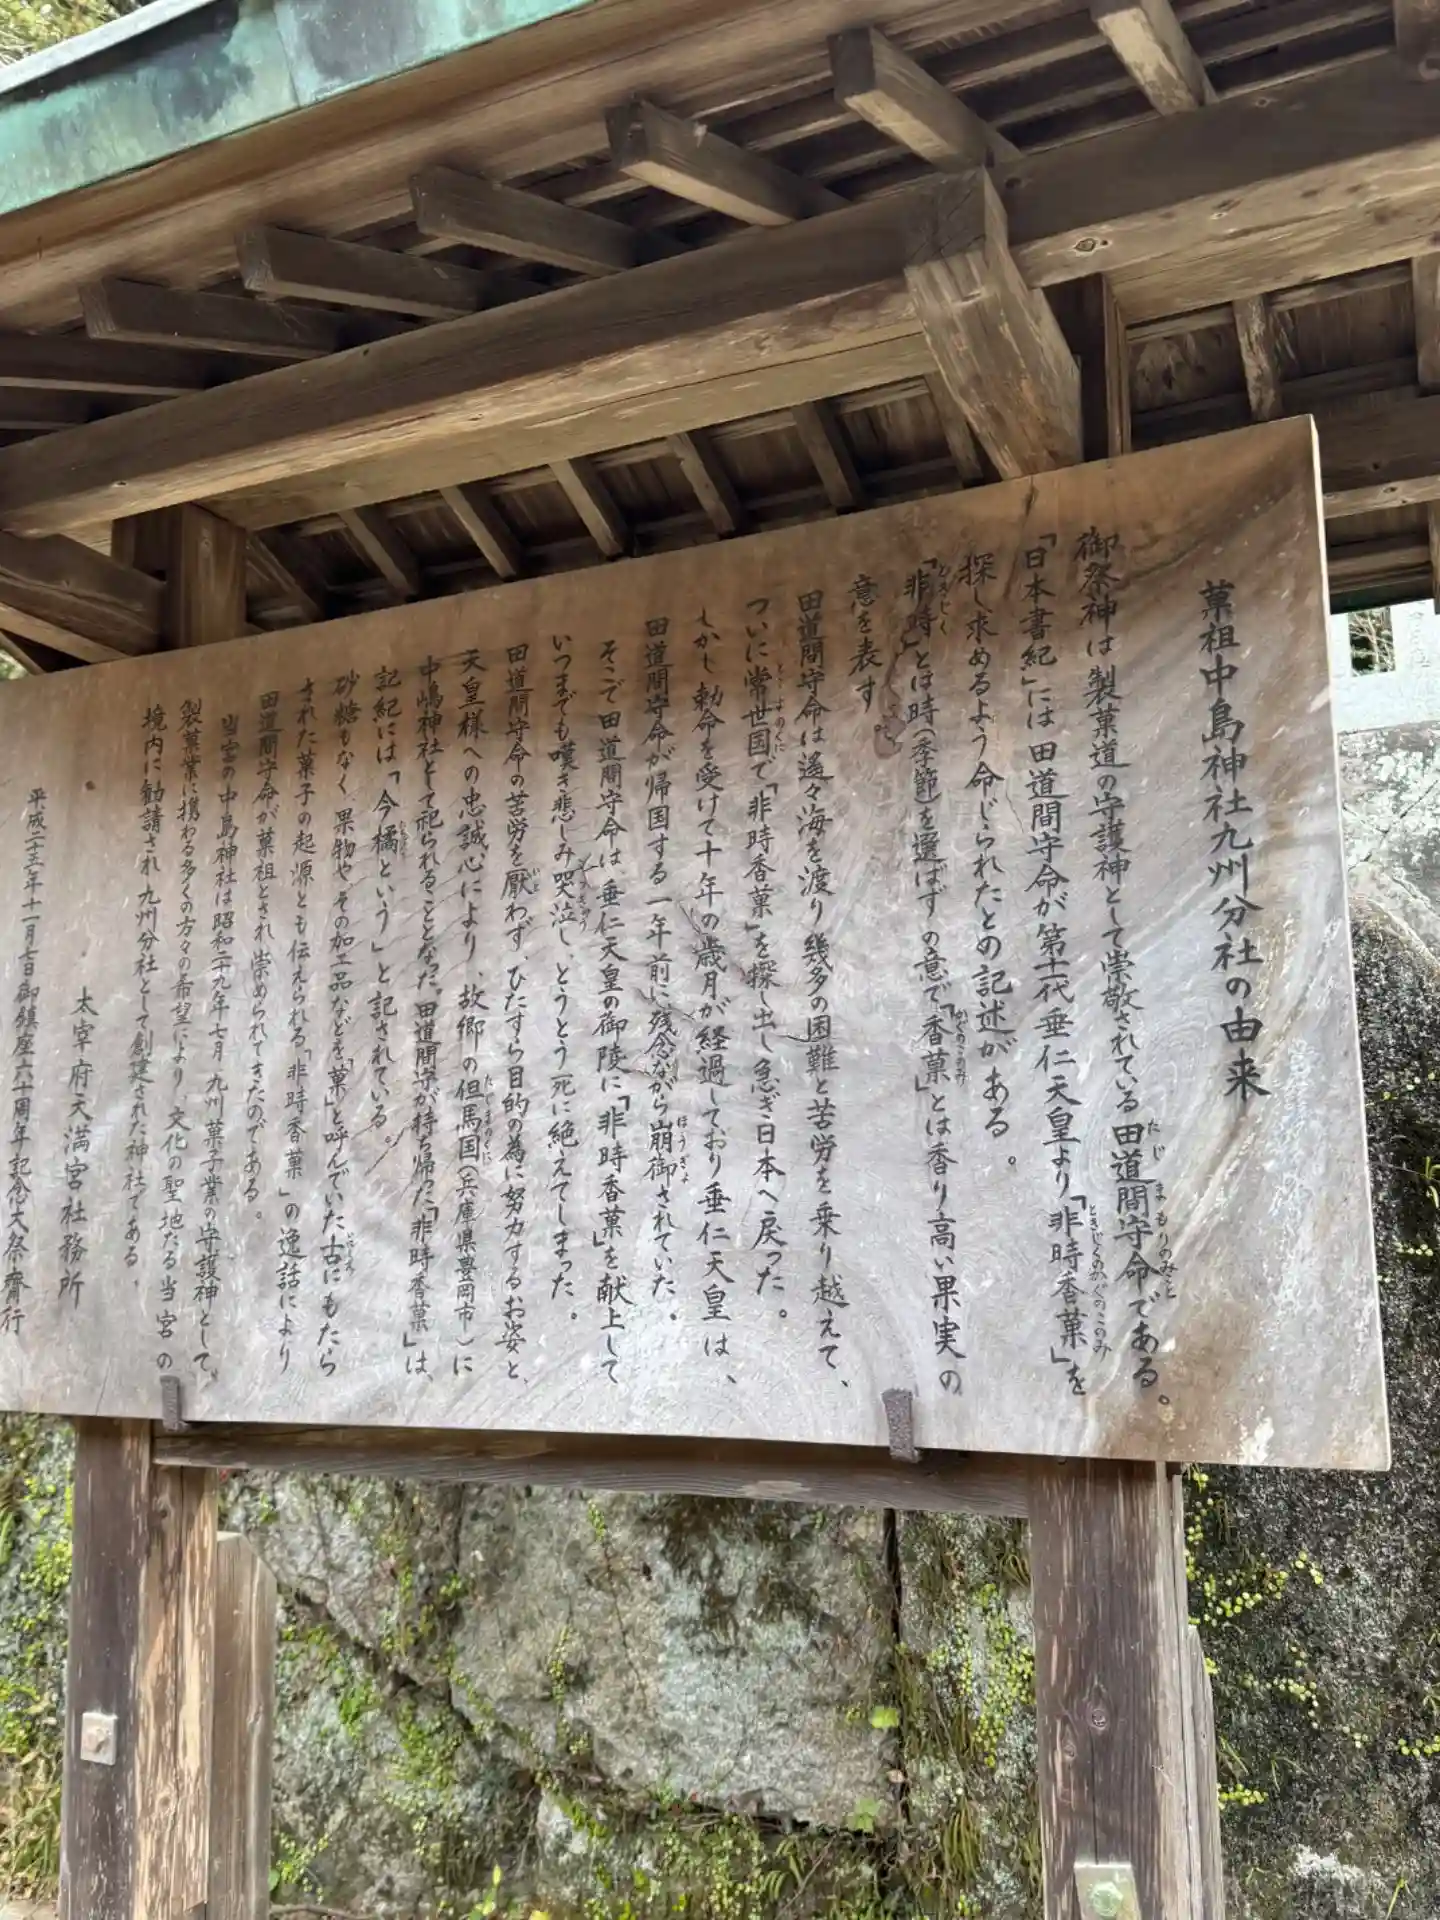 菓祖中島神社九州分社の由来
御祭神は製菓道の守護神として崇敬されている田道間守命である。
たじ まもりのみこと
「日本書紀」には田道間守命が第十代垂仁天皇より「非時香菓」を
ときじくのかぐのこのみ
探し求めるよう命じられたとの記述がある。
「非時」とは時(季節)を選ばずの意で「香菓」とは香り高い果実の
ときじく かぐのこのみ
意を表す。
田道間守命は遥々海を渡り幾多の困難と苦労を乗り越えて、
ついに常世国で「非時香菓」を探し出し急ぎ日本へ戻った。
とこよのくに
しかし勅命を受けて十年の歳月が経過しており垂仁天皇は、
田道間守命が帰国する一年前に残念ながら崩御されていた。
ほうぎょ
そこで田道間守命は、垂仁天皇の御陵に「非時香菓」を献上して
いつまでも嘆き悲しみ哭泣し、とうとう死に絶えてしまった。
田道間守命の苦労を厭わず、ひたすら目的の為に努力するお姿と、
いと
天皇様への忠誠心により、故郷の但馬国(兵庫県豊岡市)に
たじまのくに
中嶋神社として祀られることとなった。田道間守が持ち帰った「非時香菓」は、
記紀には「今橘という」と記されている。
たちばな
砂糖もなく、果物やその加工品などを「菓」と呼んでいた古にもたら
いにしえ
された菓子の起源とも伝えられる「非時香菓」の逸話により
田道間守命が菓祖とされ崇められてきたのである。
当宮の中島神社は昭和二十九年七月、九州菓子業の守護神として、
製菓業に携わる多くの方々の希望により、文化の聖地たる当宮の
境内に勧請され九州分社として創建された神社である。
太宰府天満宮社務所
平成二十五年十一月七日御鎮座六十周年記念大祭齊行